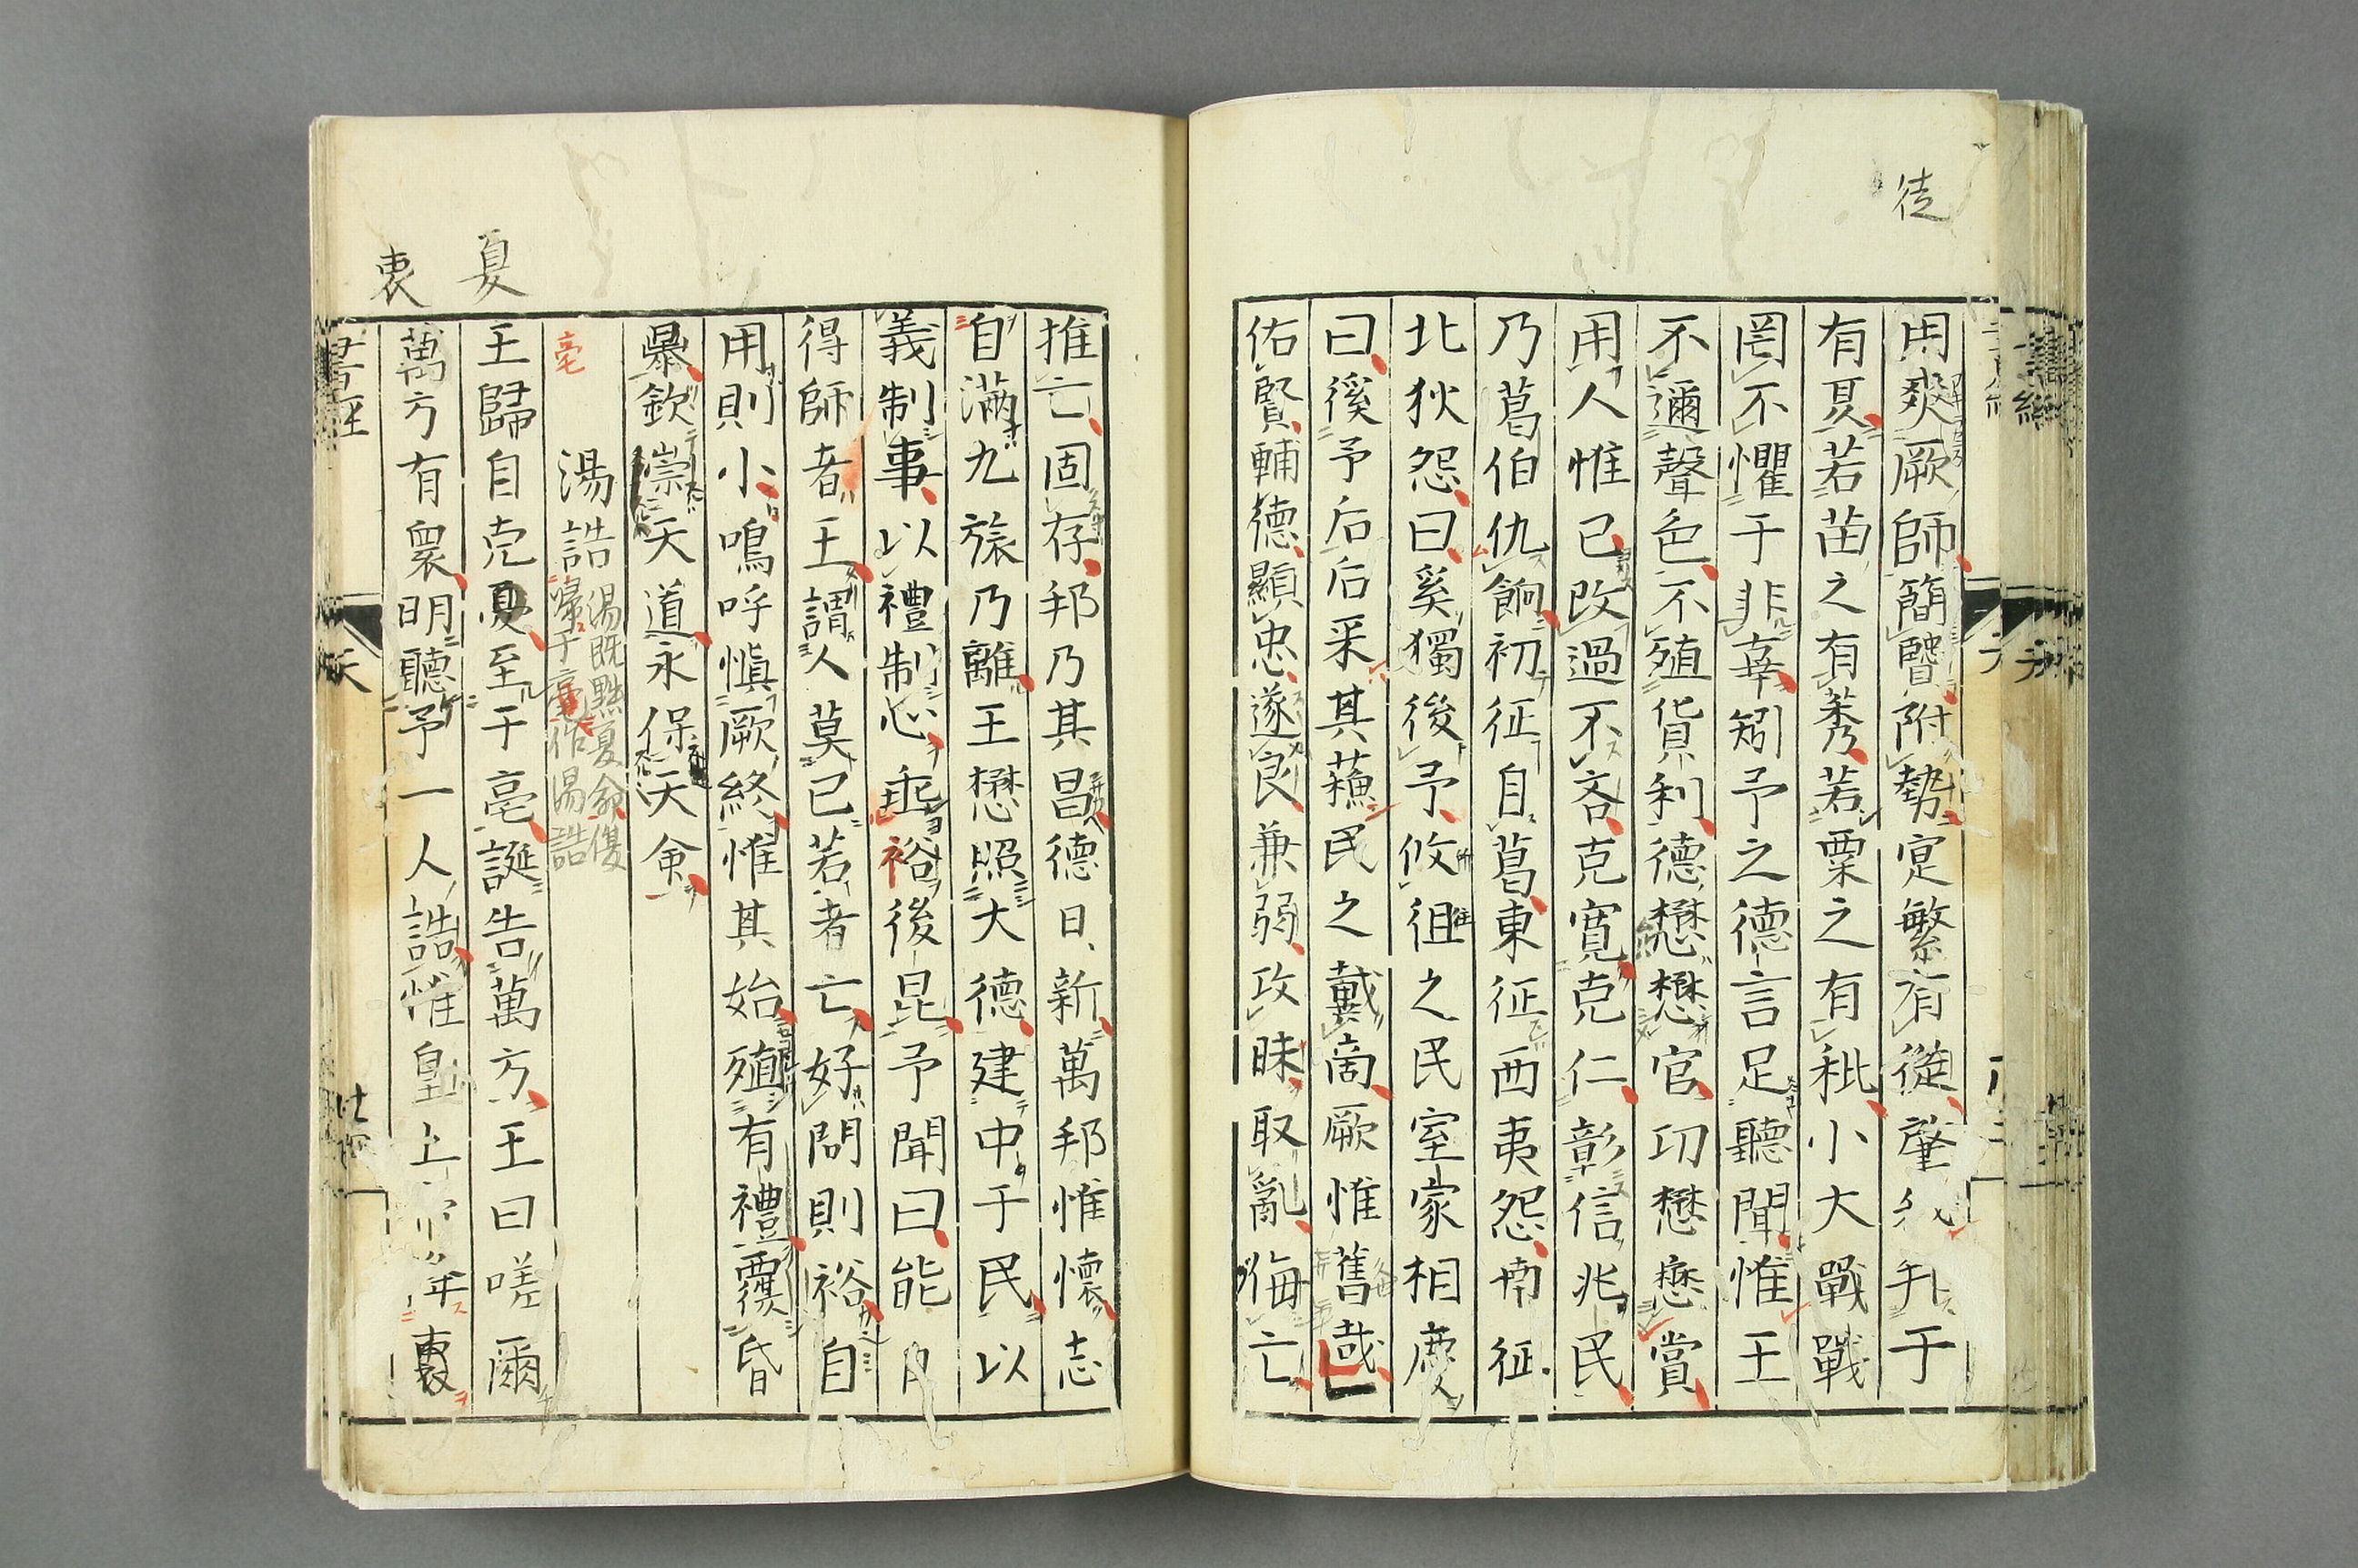 徒
用爽厥師簡賢附勢寔繁有徒肇我于
有夏若苗之有莠若粟之有秕小大戰戰
罔不懼于非辜矧予之德言足聽聞惟王
不邇聲色不殖貨利德懋懋官功懋懋賞
用人惟己改過不吝克寬克仁彰信兆民
乃葛伯仇餉初征自葛東征西夷怨南征
北狄怨曰奚獨後予攸徂之民室家相慶
曰徯予后后来其蘓民之戴商厥惟舊哉
佑賢輔德顯忠遂良兼弱攻昧取亂侮亡
推亡固存邦乃其昌德日新萬邦惟懷志
自滿九族乃離王懋昭大德建中于民以
義制事以禮制心垂裕後昆予聞曰能
得師者王謂人莫己若者亡好問則裕自
用則小嗚呼慎厥終惟其始殖有禮覆昏
暴欽崇天道永保天命
亳
湯誥
湯既黜夏命復
歸于亳作湯誥
夏
王歸自克夏至于亳誕告萬方王曰嗟爾
衷
萬方有眾明聽予一人誥惟皇上 衷